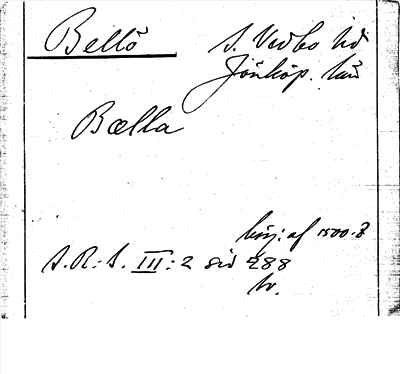 Bellö S. Vedbo hd
Jönköp. län
Bælla
börj: af 1500-t
S.R:S. III:2 sid 288
tr.